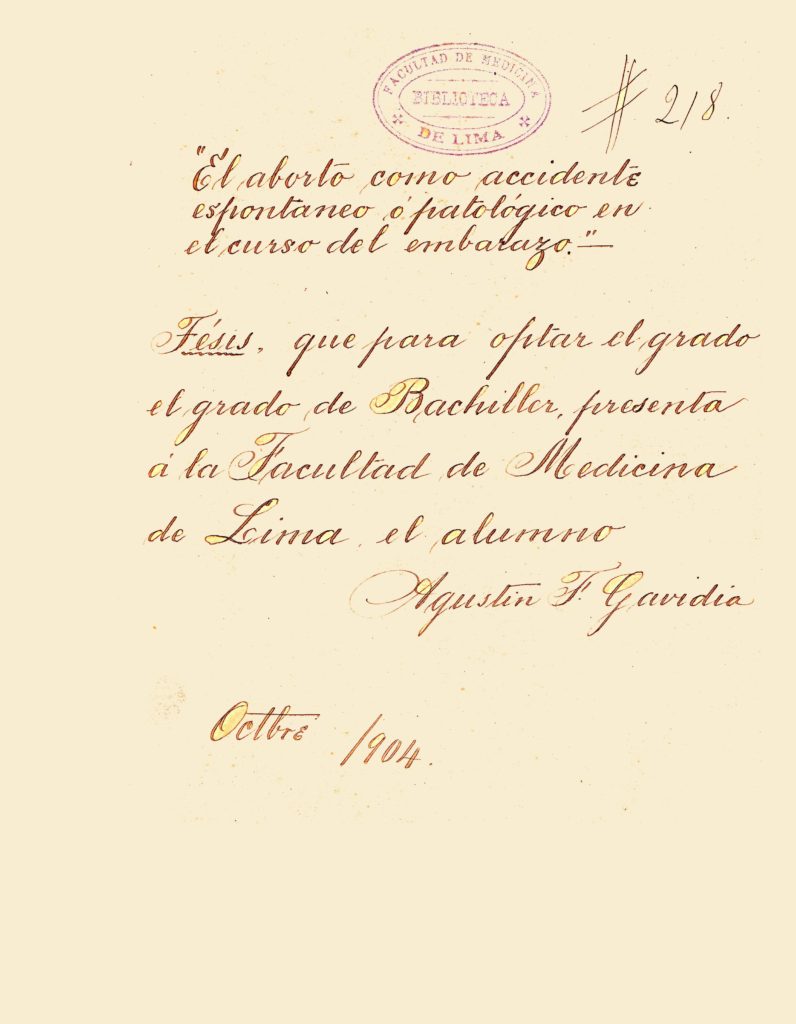 FACULTAD DE MEDICINA
BIBLIOTECA
DE LIMA
# 218.
"El aborto como accidente
espontaneo ó patológico en
el curso del embarazo."—
Tésis, que para optar el grado
el grado de Bachiller, presenta
á la Facultad de Medicina
de Lima, el alumno
Agustin F. Gavidia
Octbre /904.